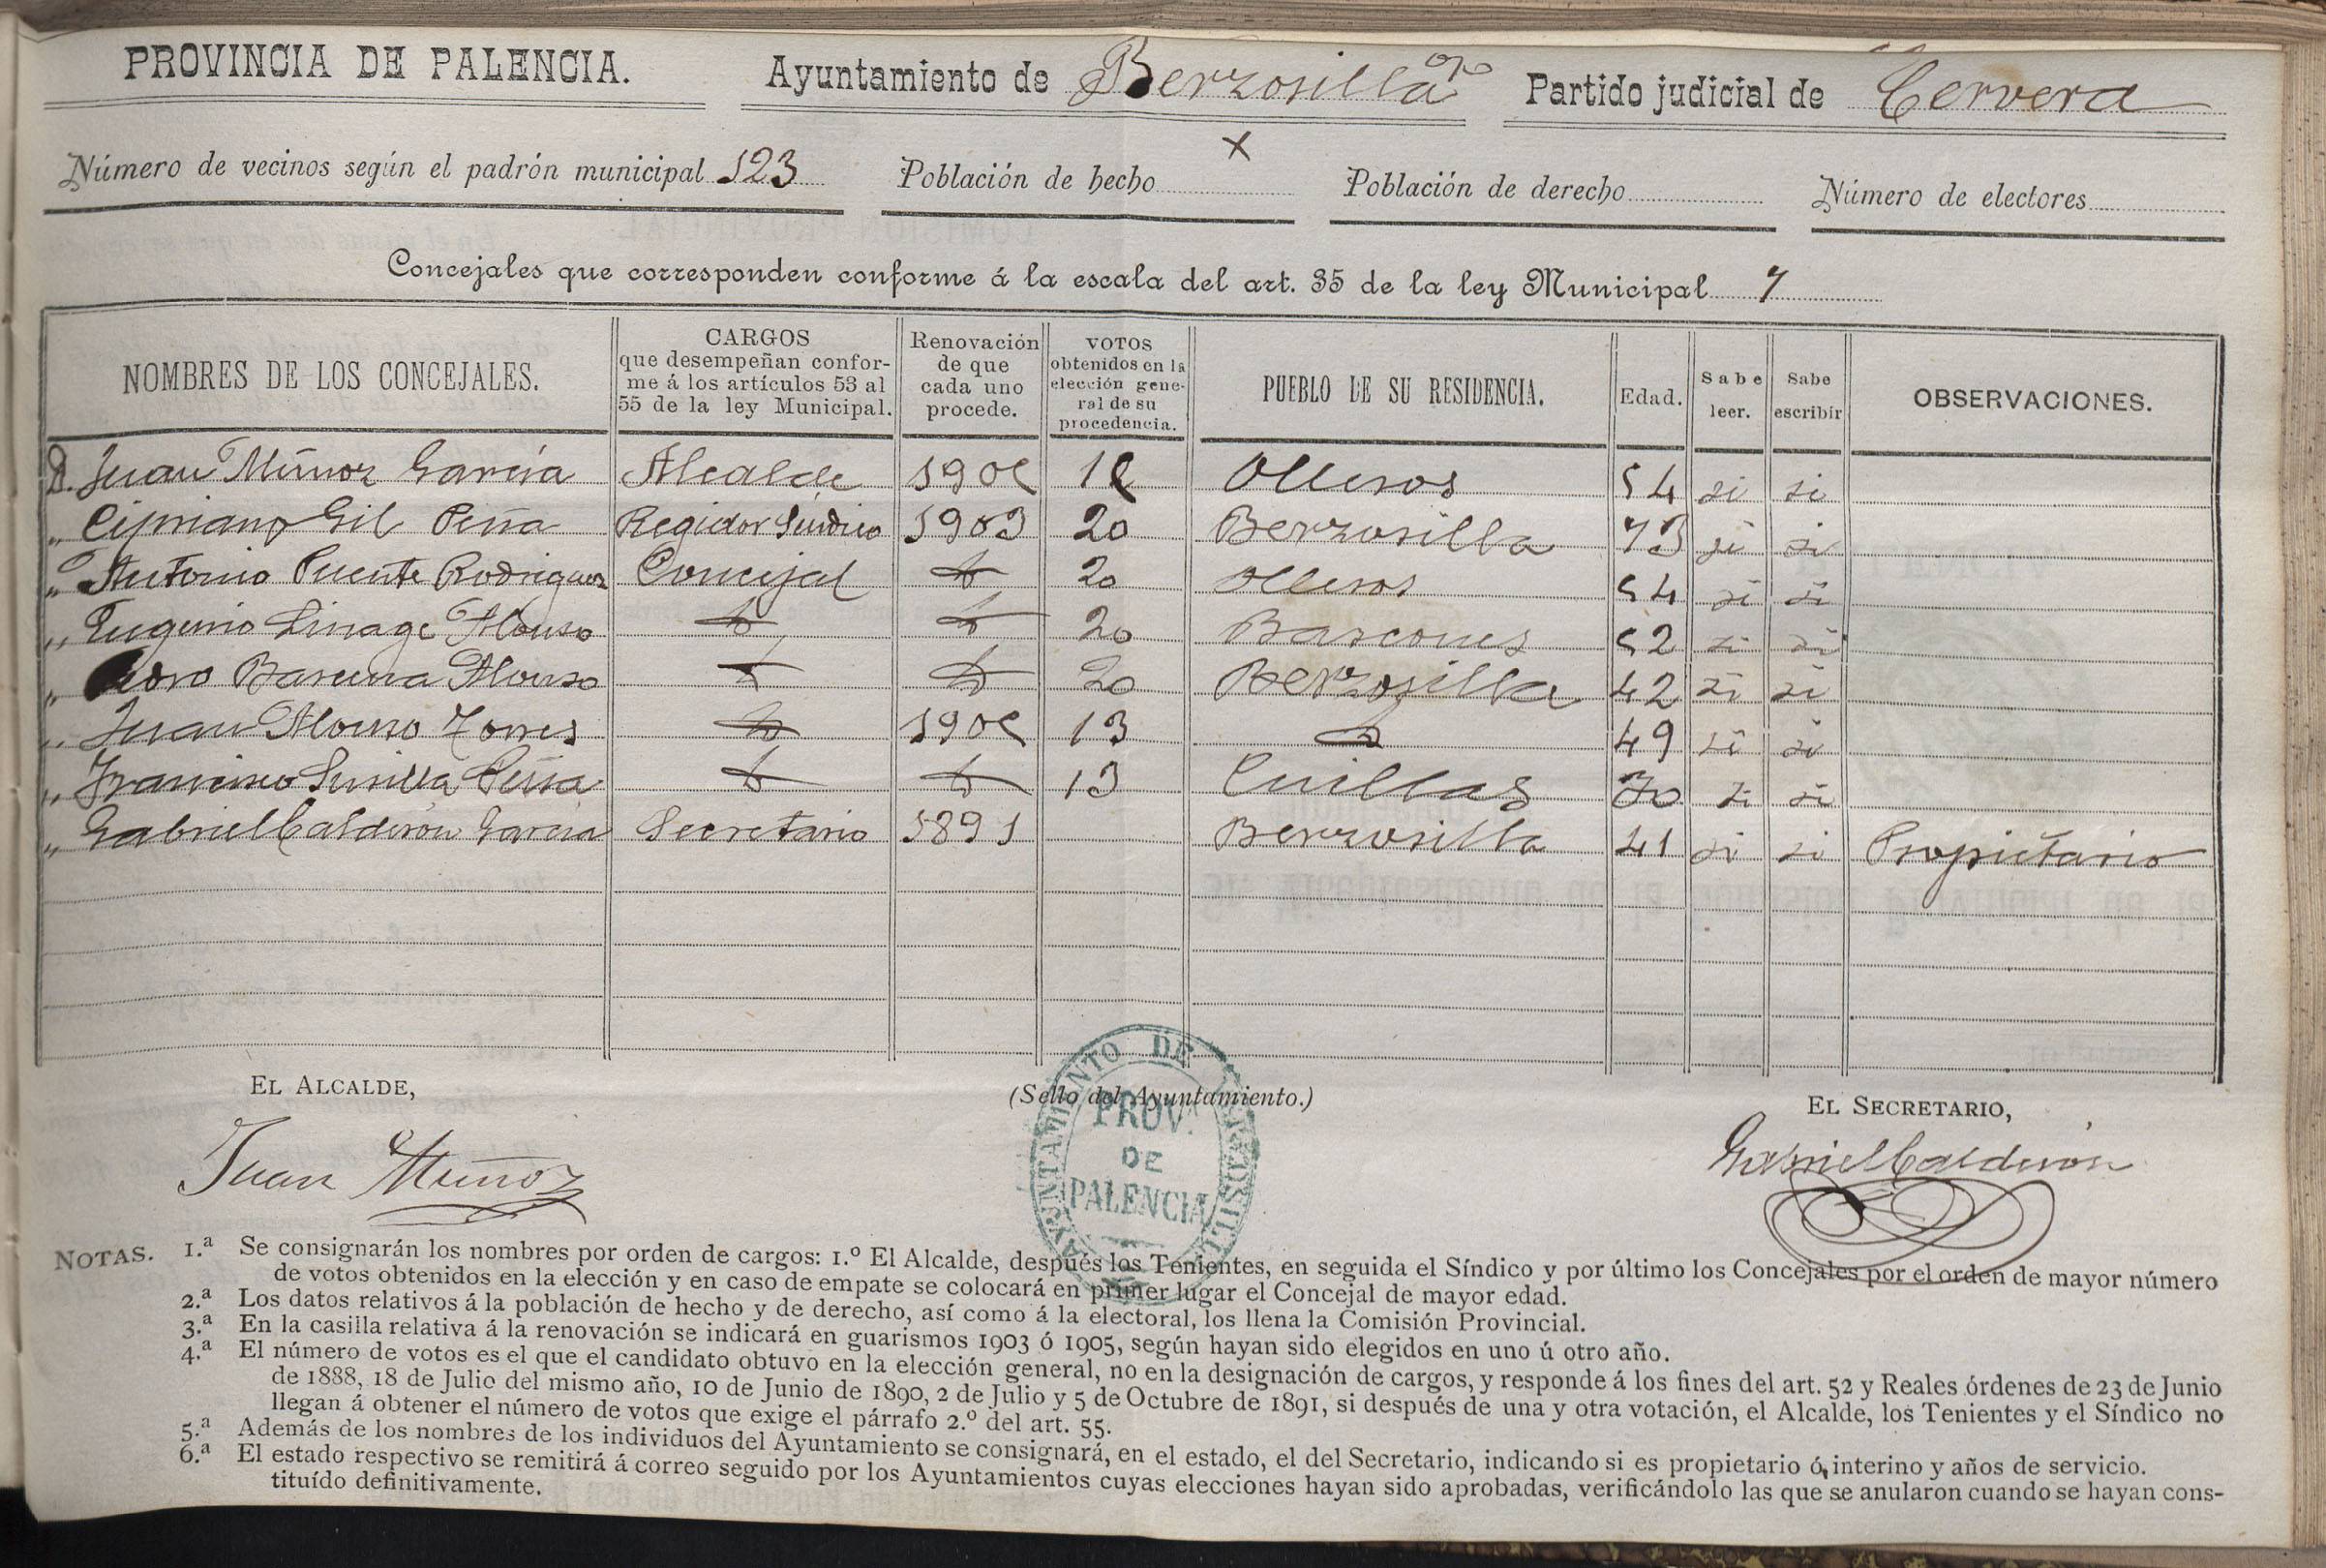 PROVINCIA DE PALENCIA. Ayuntamiento de Berzosilla Partido judicial de Cervera
Número de vecinos según el padrón municipal 123 Población de hecho Población de derecho Número de electores
Concejales que corresponden conforme á la escala del art. 35 de la ley Municipal 7
NOMBRES DE LOS CONCEJALES. CARGOS que desempeñan confor- me á los artículos 53 al 55 de la ley Municipal. Renovación de que cada uno procede. VOTOS obtenidos en la elección gene- ral de su procedencia. PUEBLO DE SU RESIDENCIA. Edad. Sabe leer. Sabe escribir OBSERVACIONES.
D. Juan Muñoz García Alcalde 1905 15 Olleros 54 si si
" Cipriano Gil Peña Regidor Síndico 1903 20 Berzosilla 73 si si
" Antonio Puente Rodriguez Concejal 20 Olleros 54 si si
" Eugenio Linage Alonso 20 Bascones 52 si si
" Pedro Barcena Alonso 20 Berzosilla 42 si si
" Juan Alonso Torres 1905 13 49 si si
" Francisco Susilla Peña 13 Cuillas 30 si si
" Gabriel Calderón García Secretario 1891 Berzosilla 41 si si Propietario
EL ALCALDE, (Sello del Ayuntamiento.) EL SECRETARIO,
Juan Muñoz Gabriel Calderón
AYUNTAMIENTO DE
PROV.
DE
PALENCIA
NOTAS. 1.ª Se consignarán los nombres por orden de cargos: 1.º El Alcalde, después los Tenientes, en seguida el Síndico y por último los Concejales por el orden de mayor número
de votos obtenidos en la elección y en caso de empate se colocará en primer lugar el Concejal de mayor edad.
2.ª Los datos relativos á la población de hecho y de derecho, así como á la electoral, los llena la Comisión Provincial.
3.ª En la casilla relativa á la renovación se indicará en guarismos 1903 ó 1905, según hayan sido elegidos en uno ú otro año.
4.ª El número de votos es el que el candidato obtuvo en la elección general, no en la designación de cargos, y responde á los fines del art. 52 y Reales órdenes de 23 de Junio
de 1888, 18 de Julio del mismo año, 10 de Junio de 1890, 2 de Julio y 5 de Octubre de 1891, si después de una y otra votación, el Alcalde, los Tenientes y el Síndico no
llegan á obtener el número de votos que exige el párrafo 2.º del art. 55.
5.ª Además de los nombres de los individuos del Ayuntamiento se consignará, en el estado, el del Secretario, indicando si es propietario ó interino y años de servicio.
6.ª El estado respectivo se remitirá á correo seguido por los Ayuntamientos cuyas elecciones hayan sido aprobadas, verificándolo las que se anularon cuando se hayan cons-
tituído definitivamente.